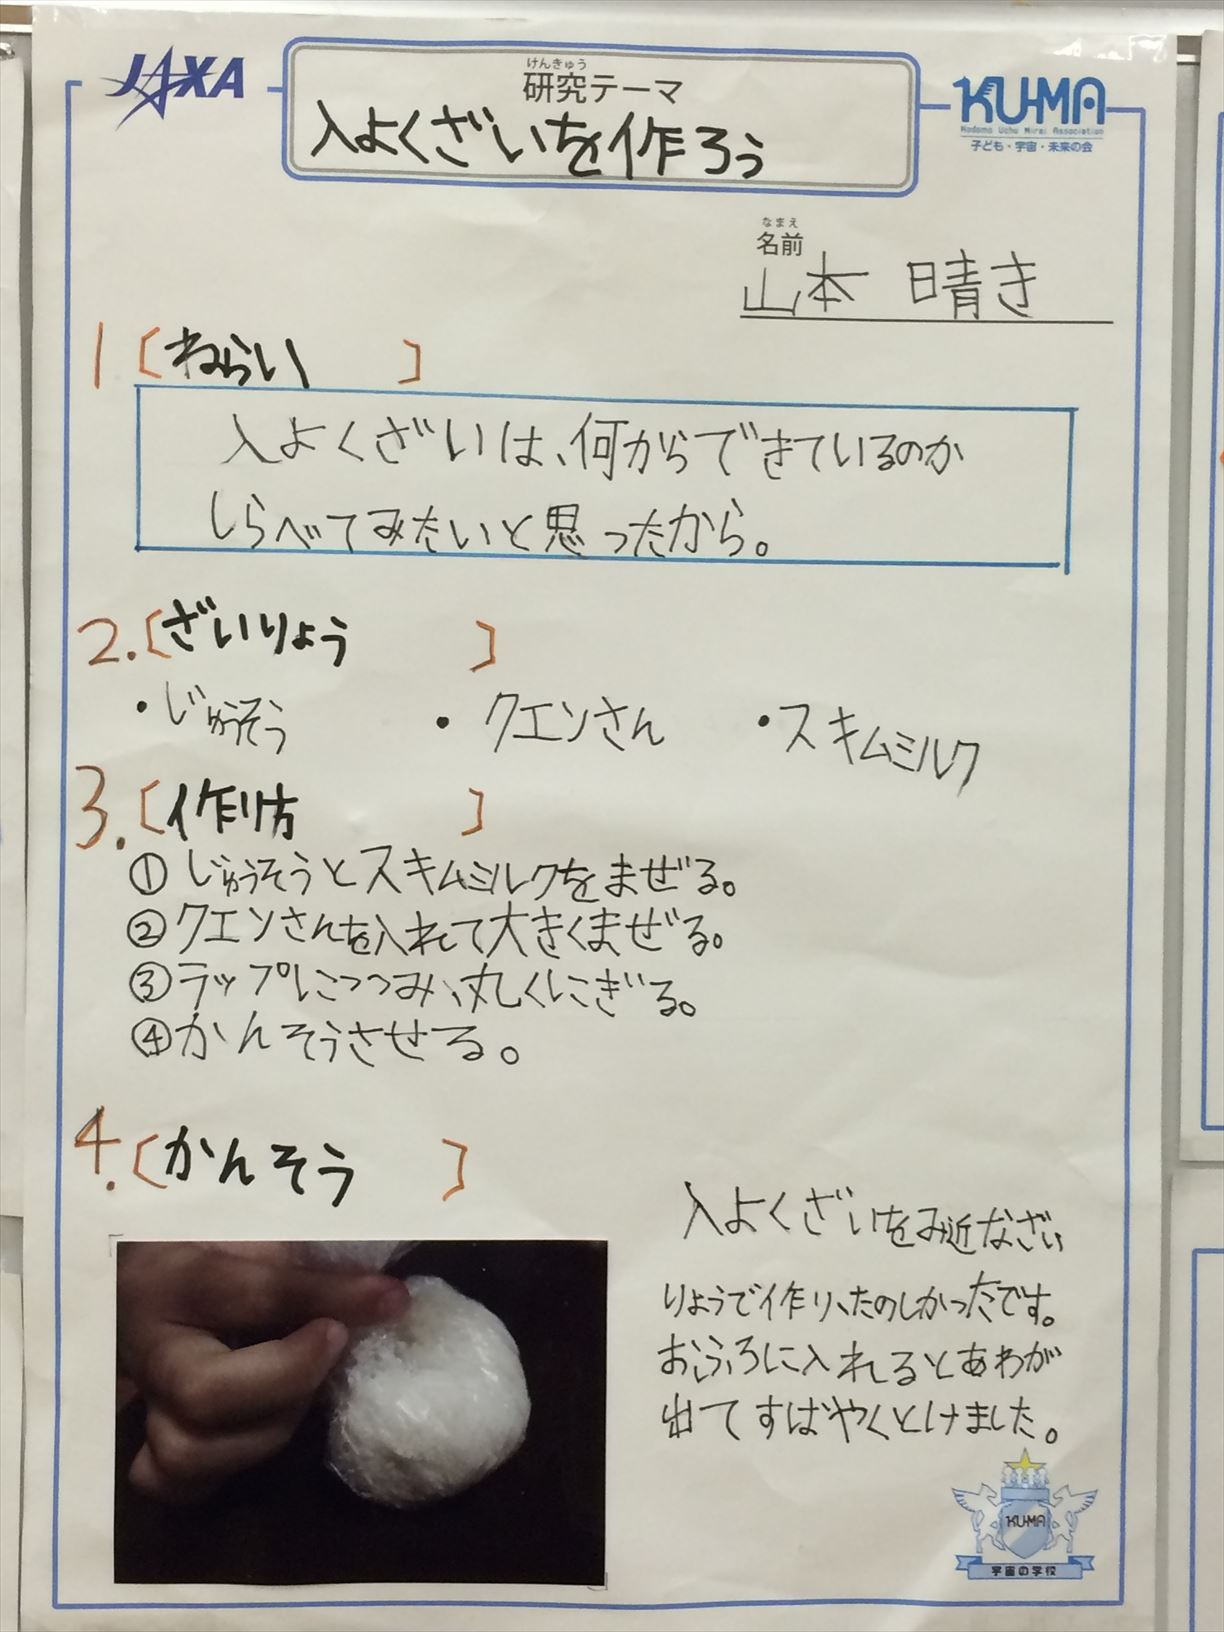 JAXA
けんきゅう
研究テーマ
入よくざいを作ろう
KU-MA
Kodomo Uchu Mirai Association
子ども・宇宙・未来の会
なまえ
名前
山本 晴き
1〔ねらい 〕
入よくざいは、何からできているのか
しらべてみたいと思ったから。
2.〔ざいりょう 〕
・じゅうそう ・クエンさん ・スキムミルク
3.〔作り方 〕
①じゅうそうとスキムミルクをまぜる。
②クエンさんを入れて大きくまぜる。
③ラップにつつみ、丸くにぎる。
④かんそうさせる。
4.〔かんそう 〕
入よくざいをみ近なざい
りょうで作り、たのしかったです。
おふろに入れるとあわが
出てすばやくとけました。
KU-MA
宇宙の学校